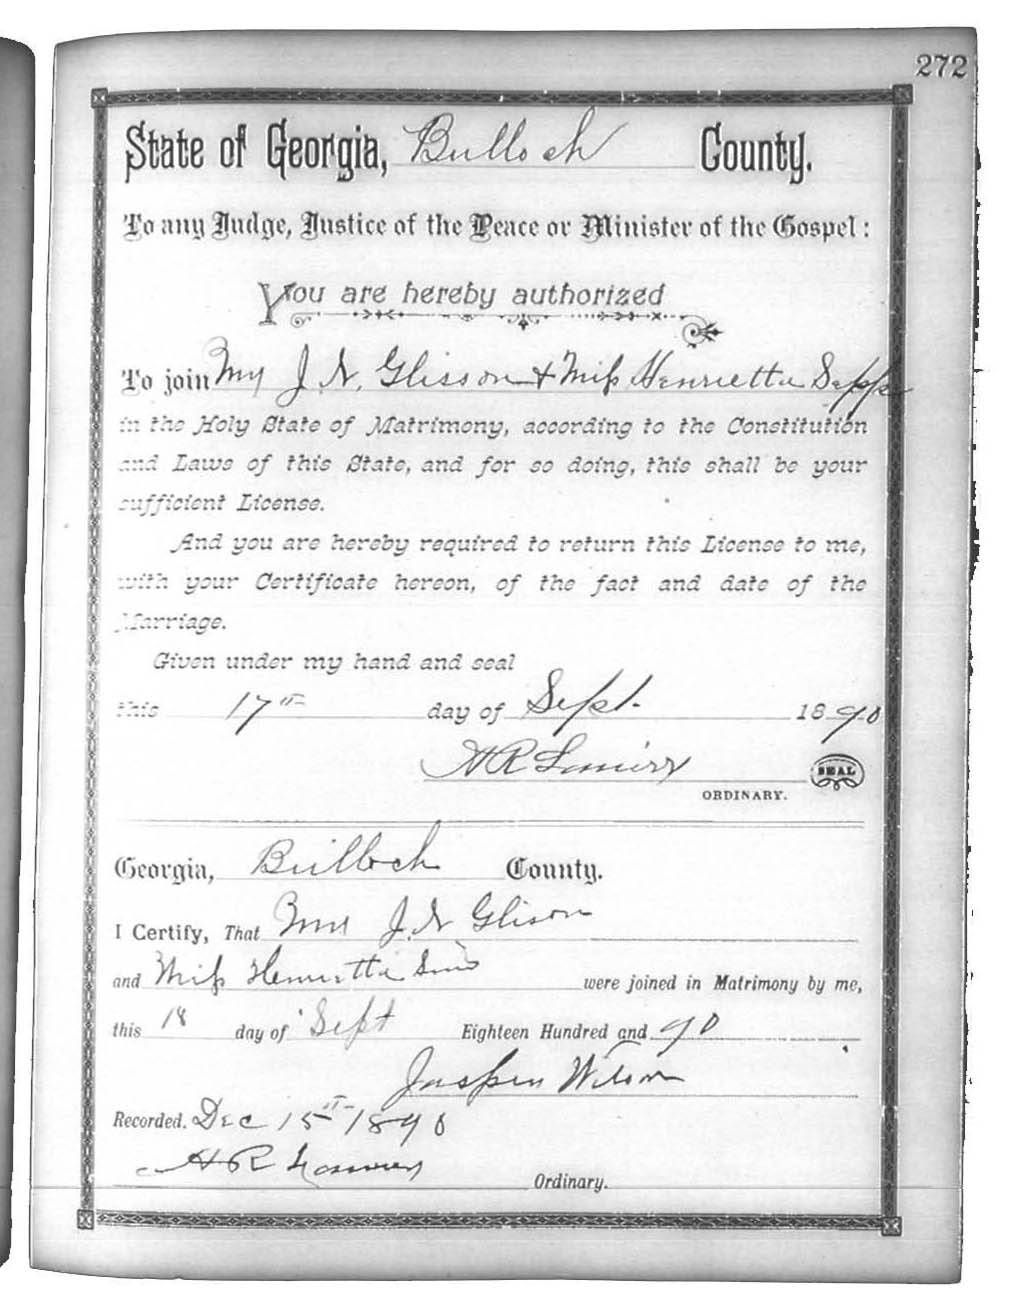 272
State of Georgia, Bulloch County.
To any Judge, Justice of the Peace or Minister of the Gospel:
You are hereby authorized
To join Mr J. N. Glisson & Miss Henrietta
in the Holy State of Matrimony, according to the Constitution
and Laws of this State, and for so doing, this shall be your
sufficient License.
And you are hereby required to return this License to me,
with your Certificate hereon, of the fact and date of the
Marriage.
Given under my hand and seal
this 17th day of Sept. 1890
A R Lanier SEAL
ORDINARY.
Georgia, Bulloch County.
I Certify, That Mr J. N Glison
and Miss Henrietta were joined in Matrimony by me,
this 18 day of Sept Eighteen Hundred and 90
Jasper Wilson
Recorded. Dec 15th 1890
A R Lanier
Ordinary.